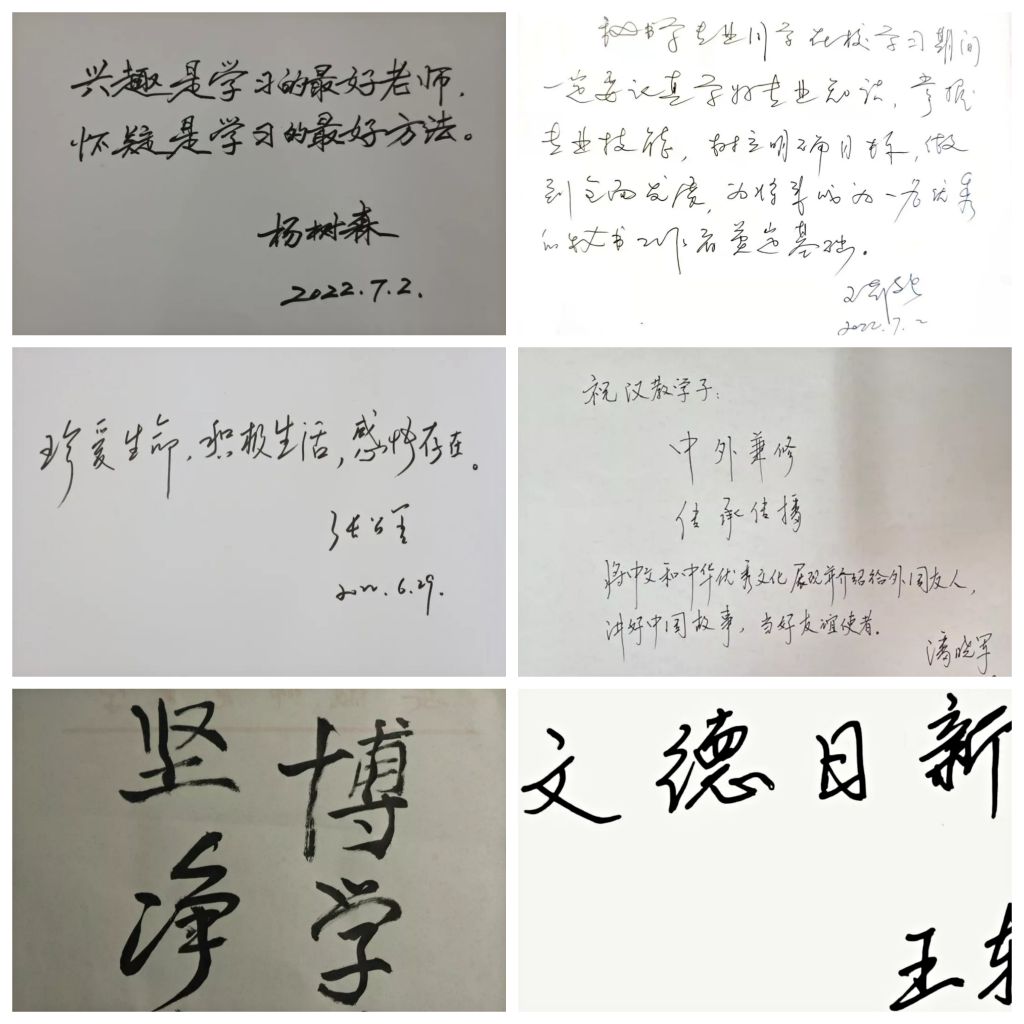 兴趣是学习的最好老师.
怀疑是学习的最好方法。
杨树森
2022.7.2.
秘书学专业同学在校学习期间
一定要认真学好专业知识,掌握
专业技能,树立明确目标,做
到全面发展,为将来成为一名优秀
的秘书工作者奠定基础。
2022.7.2
珍爱生命,积极生活,感悟存在。
张公善
2022.6.29.
祝汉教学子:
中外兼修
传承传播
将中文和中华优秀文化展现并介绍给外国友人,
讲好中国故事,当好友谊使者。
潘晓军
博学
坚净
文德日新
王